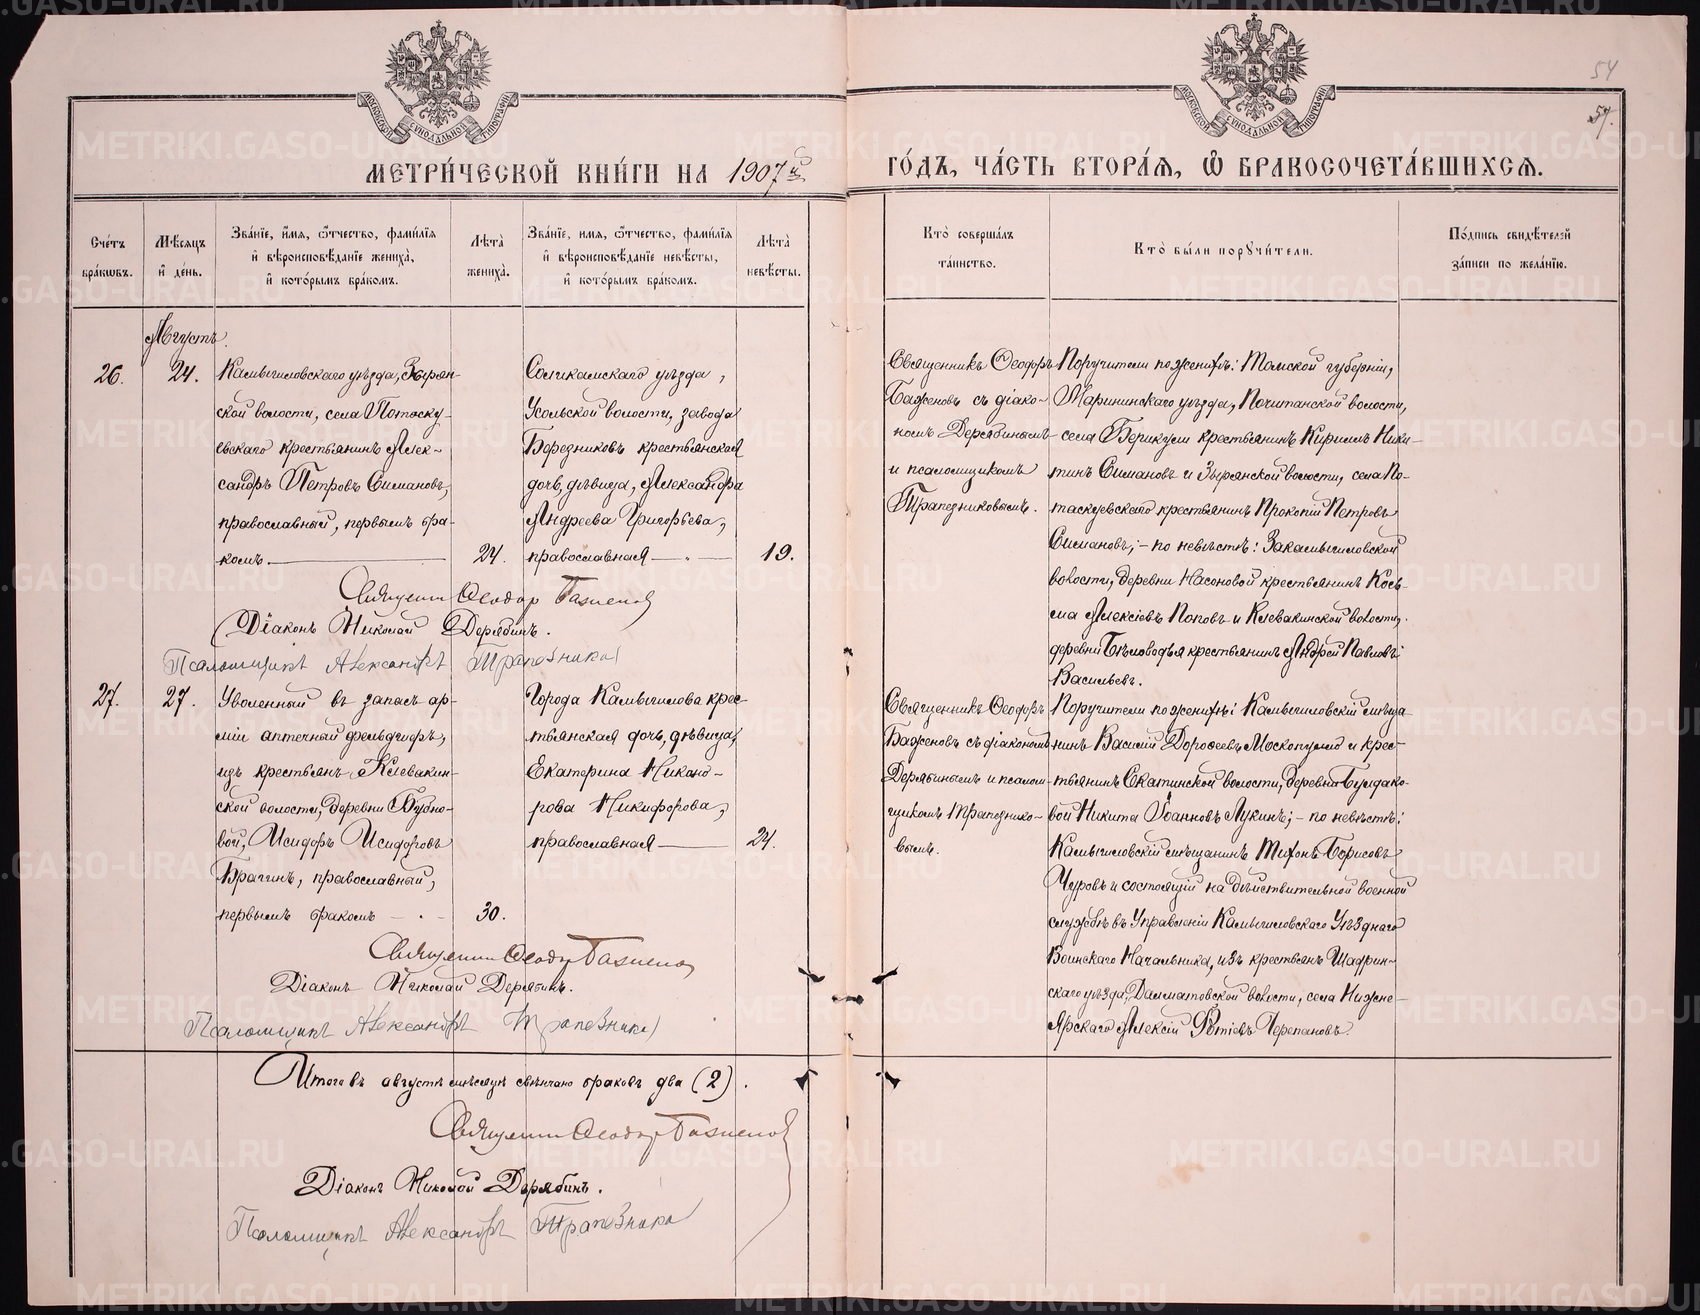 54
57.
МОСКОВСКОЙ СУНОДАЛЬНОЙ ТИПОГРАФІИ
МОСКОВСКОЙ СУНОДАЛЬНОЙ ТИПОГРАФІИ
МЕТРИ́ЧЕСКОЙ КНИ́ГИ НА 1907й
ГО́ДЪ, ЧА́СТЬ ВТОРА́Я, Ѽ БРАКОСОЧЕТА́ВШИХСЯ.
Сче́тъ бра́кѡвъ.
Мѣ́сяцъ и҆ де́нь.
Зва́нїе, и҆́мя, ѻ҆́тчество, фами́лїя и҆ вѣроисповѣ́данїе жениха̀, и҆ кото́рымъ бра́комъ.
Лѣта̀ жениха̀.
Зва́нїе, и҆́мя, ѻ҆́тчество, фами́лїя и҆ вѣроисповѣ́данїе невѣ́сты, и҆ кото́рымъ бра́комъ.
Лѣта̀ невѣ́сты.
Кто̀ соверша́лъ та́инство.
Кто̀ бы́ли пору́чи́тели.
По́дпись свидѣ́телей за́писи по жела́нїю.
Августъ.
26.
24.
Камышловскаго уѣзда, Зырян-
ской волости, села Потаску-
евскаго крестьянинъ Алек-
сандръ Петровъ Симановъ,
православный, первымъ бра-
комъ.
24.
Соликамскаго уѣзда,
Усольской волости, завода
Березниковъ крестьянская
дочь, дѣвица, Александра
Андреева Григорьева,
православная
19.
Священникъ Ѳеодоръ
Баженовъ съ діако-
номъ Дерябинымъ
и псаломщикомъ
Трапезниковымъ.
Поручители по женихѣ: Томской губерніи,
Марiинскаго уѣзда, Почитанской волости,
села Берикули крестьянинъ Кириллъ Ники-
тинъ Симановъ и Зырянской волости, села По-
таскуевскаго крестьянинъ Прокопій Петровъ
Симановъ; - по невѣстѣ: Закамышловской
волости, деревни Насоновой крестьянинъ Кось-
ма Алексіевъ Поповъ и Клевакинской волости,
деревни Бѣловодья крестьянинъ Андрей Павловъ
Васильевъ.
Священникъ Ѳеодоръ Баженовъ
Діаконъ Николай Дерябинъ.
Псаломщикъ Александръ Трапезниковъ
27.
27.
Уволенный въ запасъ ар-
міи аптечный фельдшеръ,
изъ крестьянъ Клевакин-
ской волости, деревни Бубно-
вой, Исидоръ Исидоровъ
Брагинъ, православный,
первымъ бракомъ
30.
Города Камышлова крес-
тьянская дочь, дѣвица,
Екатерина Никано-
рова Никифорова,
православная
24.
Священникъ Ѳеодоръ
Баженовъ съ діакономъ
Дерябинымъ и псалом-
щикомъ Трапезнико-
вымъ.
Поручители по женихѣ: Камышловскій мѣща-
нинъ Василій Дороѳеевъ и крес-
тьянинъ Скатинской волости, деревни Булдако-
вой Никита Іоанновъ Лукинъ; - по невѣстѣ:
Камышловскій мѣщанинъ Тихонъ Борисовъ
Чуровъ и состоящій на дѣйствительной военной
службѣ въ Управленіи Камышловскаго Уѣзднаго
Воинскаго Начальника, изъ крестьянъ Шадрин-
скаго уѣзда, Далматовской волости, села Нижне-
Ярскаго Алексій Фотіевъ Черепановъ.
Священникъ Ѳеодоръ Баженовъ
Діаконъ Николай Дерябинъ.
Псаломщикъ Александръ Трапезниковъ
Итого въ августѣ мѣсяцѣ свѣнчано браковъ два (2).
Священникъ Ѳеодоръ Баженовъ
Діаконъ Николай Дерябинъ.
Псаломщикъ Александръ Трапезниковъ
METRIKI.GASO-URAL.RU